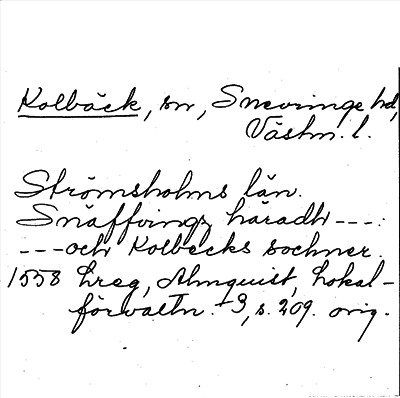 Kolbäck, sn, Snevringe hd,
Västm. l.
Strömsholms län.
Snäffvings häradh ---:
--- och Kolbecks sochner.
1558 Lreg, Almquist, Lokal-
förvaltn. 3, s. 209. orig.